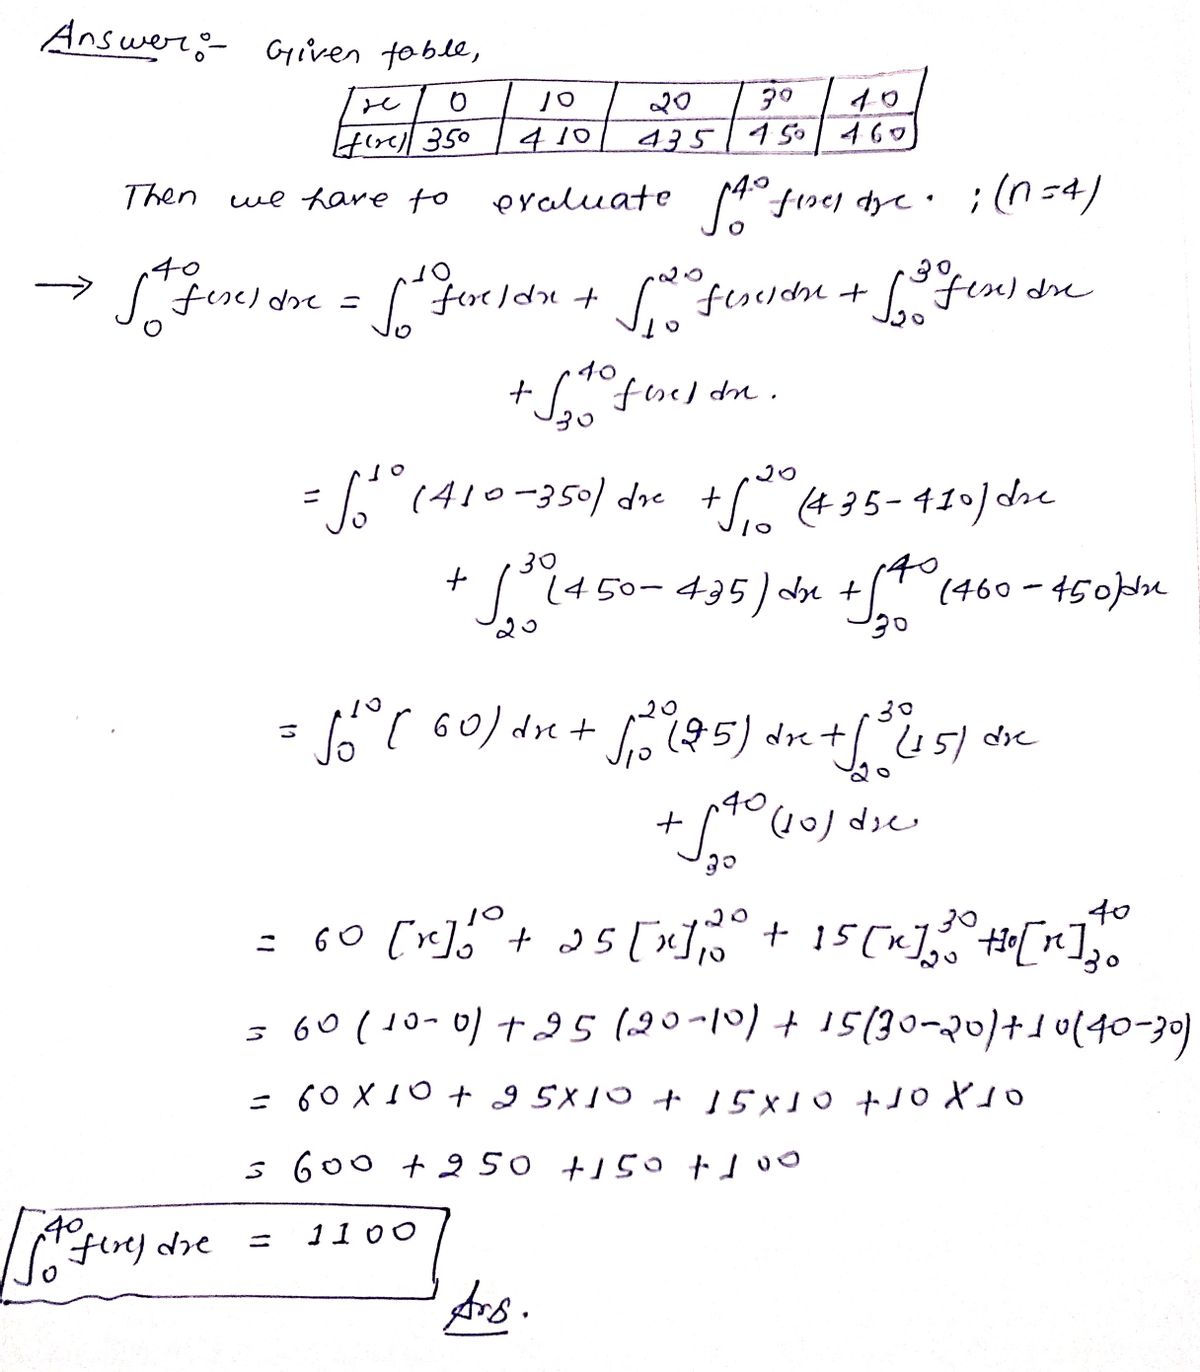 Answer:- Given table,
x 0 10 20 30 40
f(x) 350 410 435 450 460
Then we have to evaluate ∫₀⁴⁰ f(x) dx. ; (n=4)
→ ∫₀⁴⁰ f(x) dx = ∫₀¹⁰ f(x) dx + ∫₁₀²⁰ f(x) dx + ∫₂₀³⁰ f(x) dx
+ ∫₃₀⁴⁰ f(x) dx.
= ∫₀¹⁰ (410-350) dx + ∫₁₀²⁰ (435-410) dx
+ ∫₂₀³⁰ (450-435) dx + ∫₃₀⁴⁰ (460-450) dx
= ∫₀¹⁰ (60) dx + ∫₁₀²⁰ (25) dx + ∫₂₀³⁰ (15) dx
+ ∫₃₀⁴⁰ (10) dx
= 60 [x]₀¹⁰ + 25 [x]₁₀²⁰ + 15 [x]₂₀³⁰ + 10 [x]₃₀⁴⁰
= 60 (10-0) + 25 (20-10) + 15(30-20) + 10(40-30)
= 60 X 10 + 25X10 + 15x10 + 10 X 10
= 600 + 250 + 150 + 100
∫₀⁴⁰ f(x) dx = 1100
Ans.